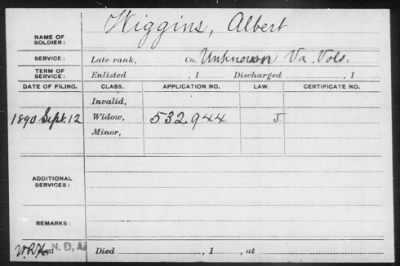 Wiggins, Albert
NAME OF SOLDIER:
SERVICE: Late rank, Co. Unknown Va. Vols.
TERM OF SERVICE: Enlisted , 1 Discharged , 1
DATE OF FILING. CLASS. APPLICATION NO. LAW. CERTIFICATE NO.
Invalid,
1890 Sept. 12 Widow, 532944 J
Minor,
ADDITIONAL SERVICES:
REMARKS:
Died , 1 , at